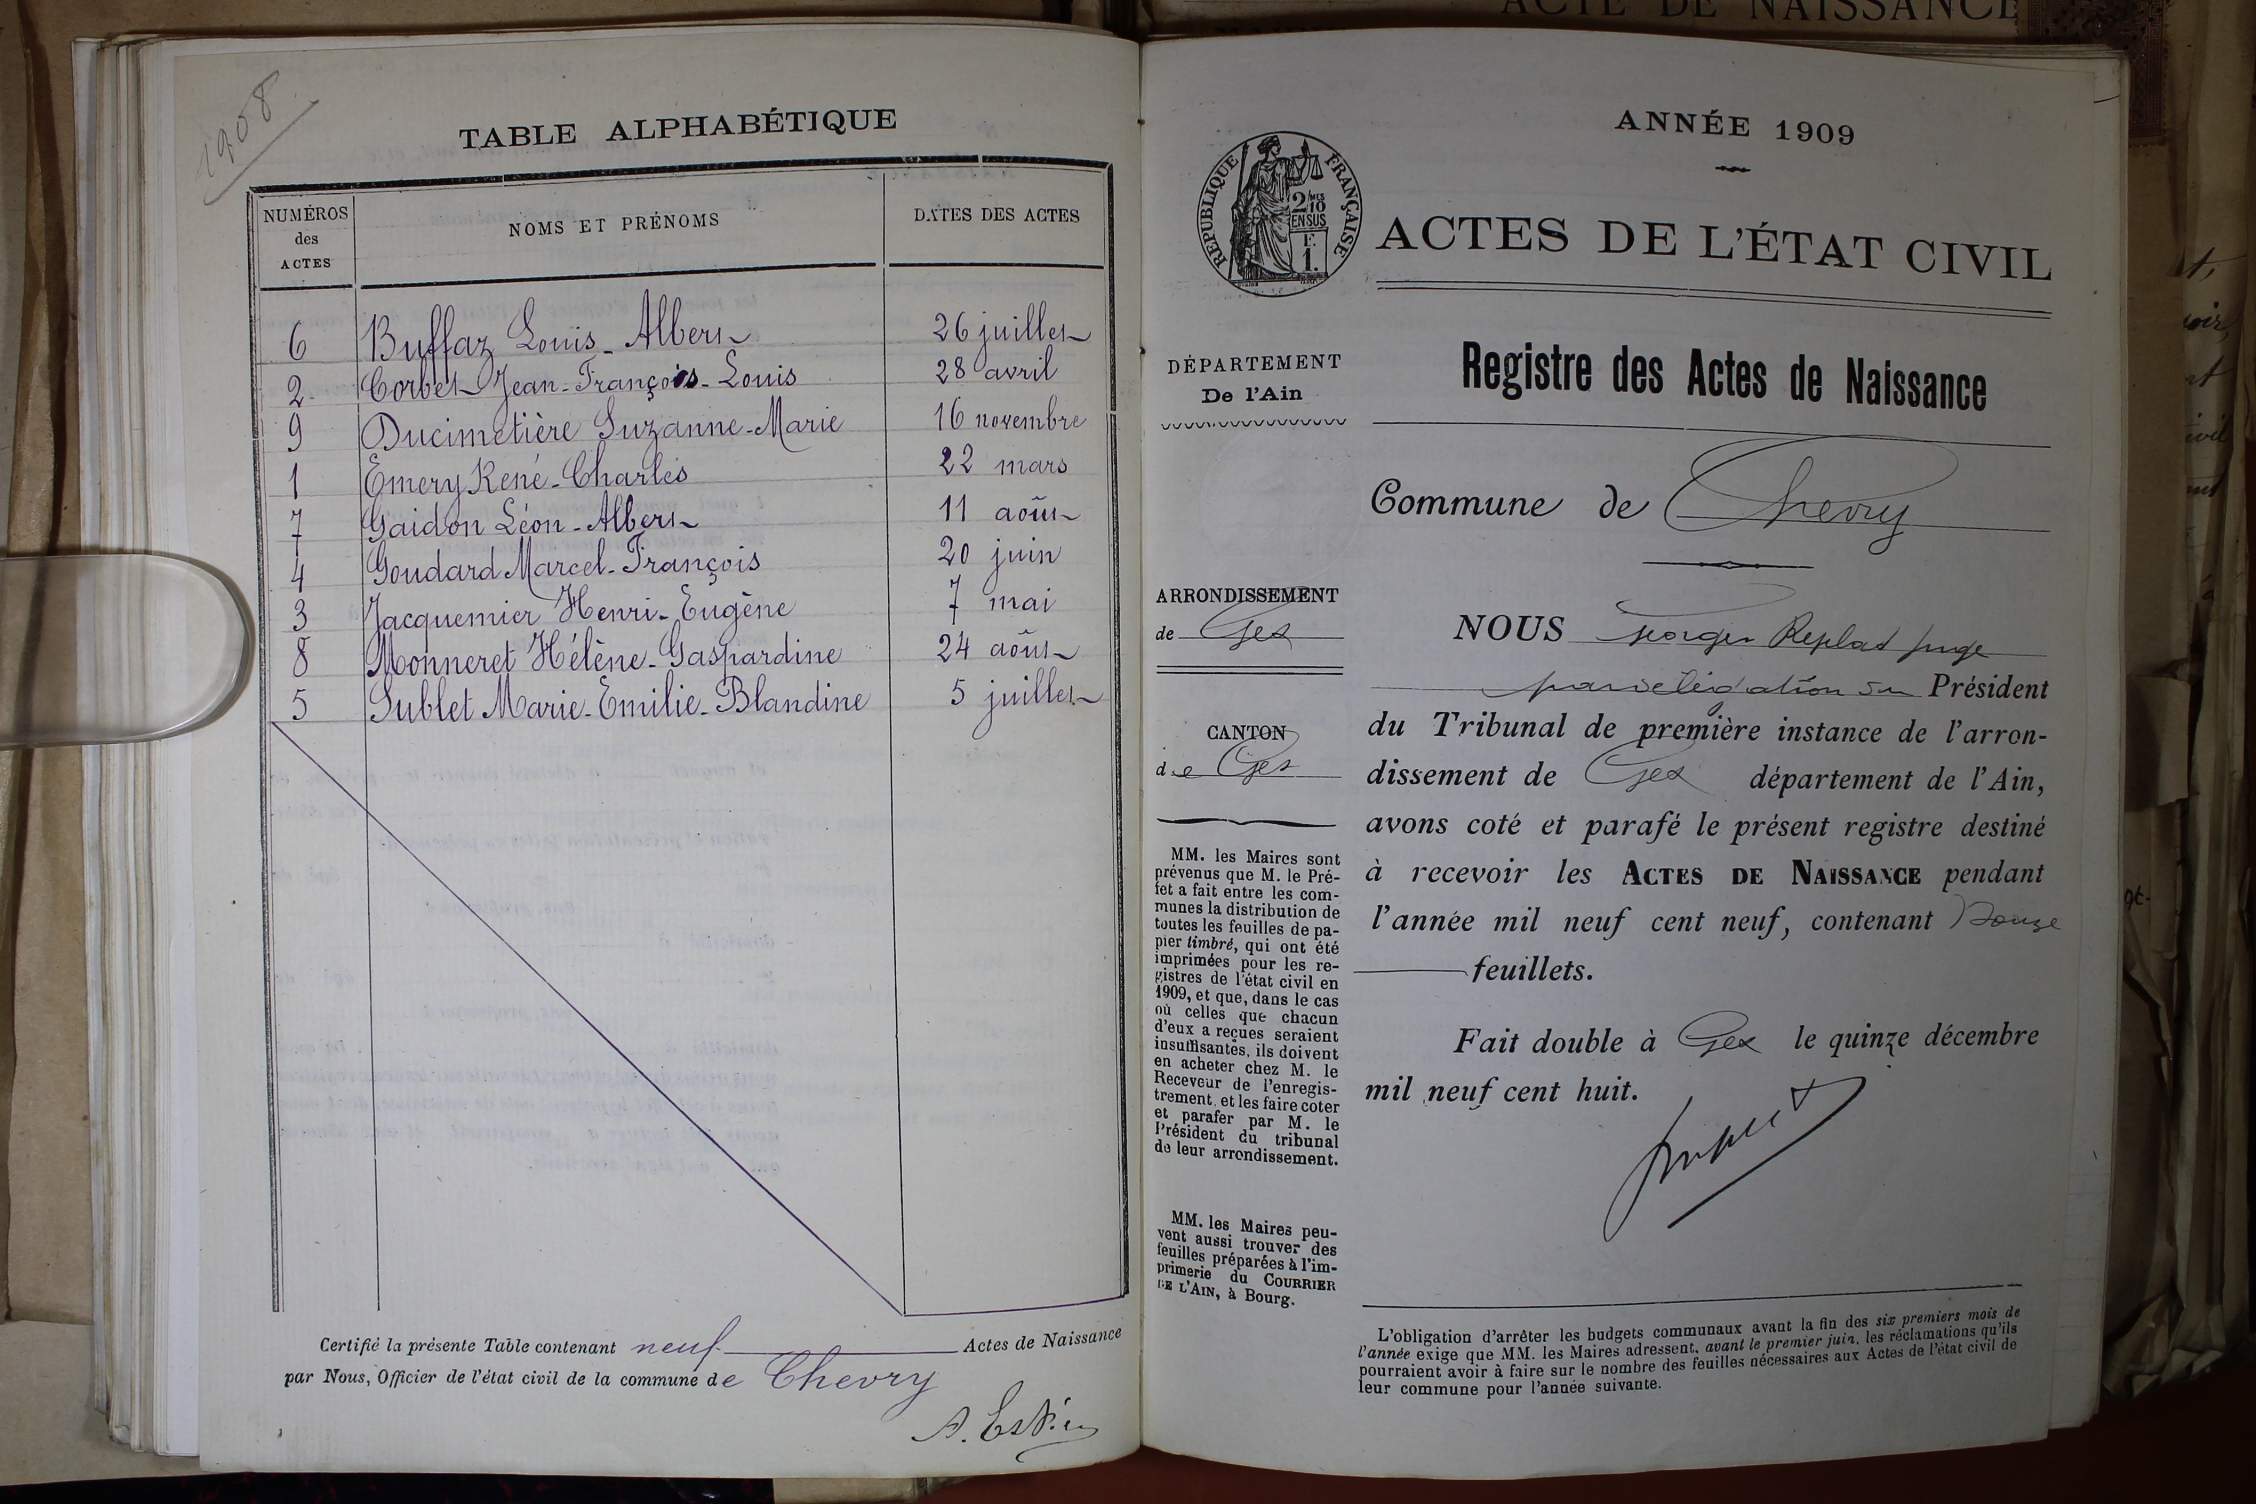 ACTE DE NAISSANCE
1908
TABLE ALPHABÉTIQUE
NUMÉROS des ACTES
NOMS ET PRÉNOMS
DATES DES ACTES
6 Buffaz Louis-Albert 26 juillet
2 Corbet Jean-François-Louis 28 avril
9 Ducimetière Suzanne-Marie 16 novembre
1 Emery René-Charles 22 mars
7 Gaidon Léon-Albert 11 août
4 Goudard Marcel-François 20 juin
3 Jacquemier Henri-Eugène 7 mai
8 Monneret Hélène-Gaspardine 24 août
5 Sublet Marie-Emilie-Blandine 5 juillet
Certifié la présente Table contenant neuf Actes de Naissance
par Nous, Officier de l'état civil de la commune de Chevry
ANNÉE 1909
RÉPUBLIQUE FRANÇAISE
2/10 MES
EN SUS
F.
1.
ACTES DE L'ÉTAT CIVIL
DÉPARTEMENT
De l'Ain
ARRONDISSEMENT
de Gex
CANTON
de Gex
MM. les Maires sont
prévenus que M. le Pré-
fet a fait entre les com-
munes la distribution de
toutes les feuilles de pa-
pier timbré, qui ont été
imprimées pour les re-
gistres de l'état civil en
1909, et que, dans le cas
où celles que chacun
d'eux a reçues seraient
insuffisantes, ils doivent
en acheter chez M. le
Receveur de l'enregis-
trement, et les faire coter
et parafer par M. le
Président du tribunal
de leur arrondissement.
MM. les Maires peu-
vent aussi trouver des
feuilles préparées à l'im-
primerie du COURRIER
DE L'AIN, à Bourg.
Registre des Actes de Naissance
Commune de Chevry
NOUS Georges Replat juge
par délégation du Président
du Tribunal de première instance de l'arron-
dissement de Gex département de l'Ain,
avons coté et parafé le présent registre destiné
à recevoir les ACTES DE NAISSANCE pendant
l'année mil neuf cent neuf, contenant Douze
feuillets.
Fait double à Gex le quinze décembre
mil neuf cent huit.
L'obligation d'arrêter les budgets communaux avant la fin des six premiers mois de
l'année exige que MM. les Maires adressent, avant le premier juin, les réclamations qu'ils
pourraient avoir à faire sur le nombre des feuilles nécessaires aux Actes de l'état civil de
leur commune pour l'année suivante.